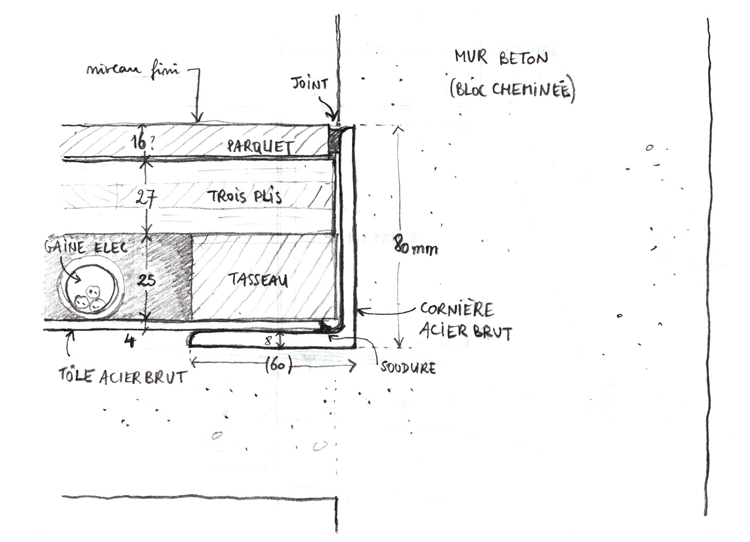 MUR BETON
(BLOC CHEMINÉE)
niveau fini
JOINT
16?
PARQUET
27
TROIS PLIS
80mm
GAINE ELEC
25
TASSEAU
CORNIÈRE
ACIER BRUT
4
8
(60)
SOUDURE
TÔLE ACIER BRUT